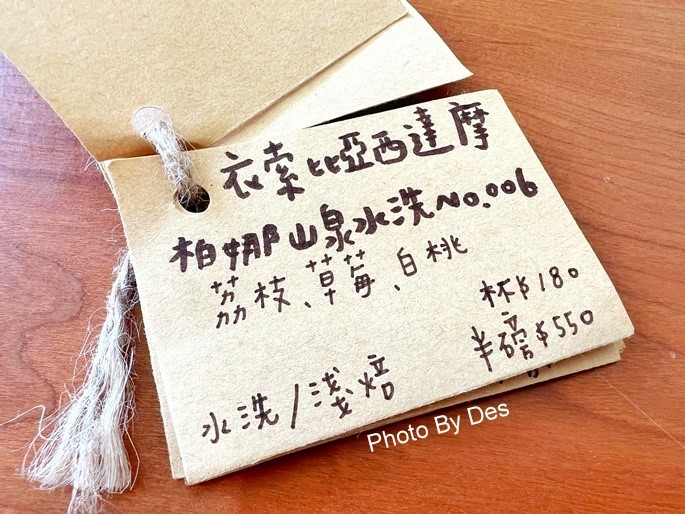 衣索比亞西達摩
柏娜山泉水洗NO.006
荔枝、草莓、白桃
杯$180
半磅$550
水洗/淺焙
Photo By Des